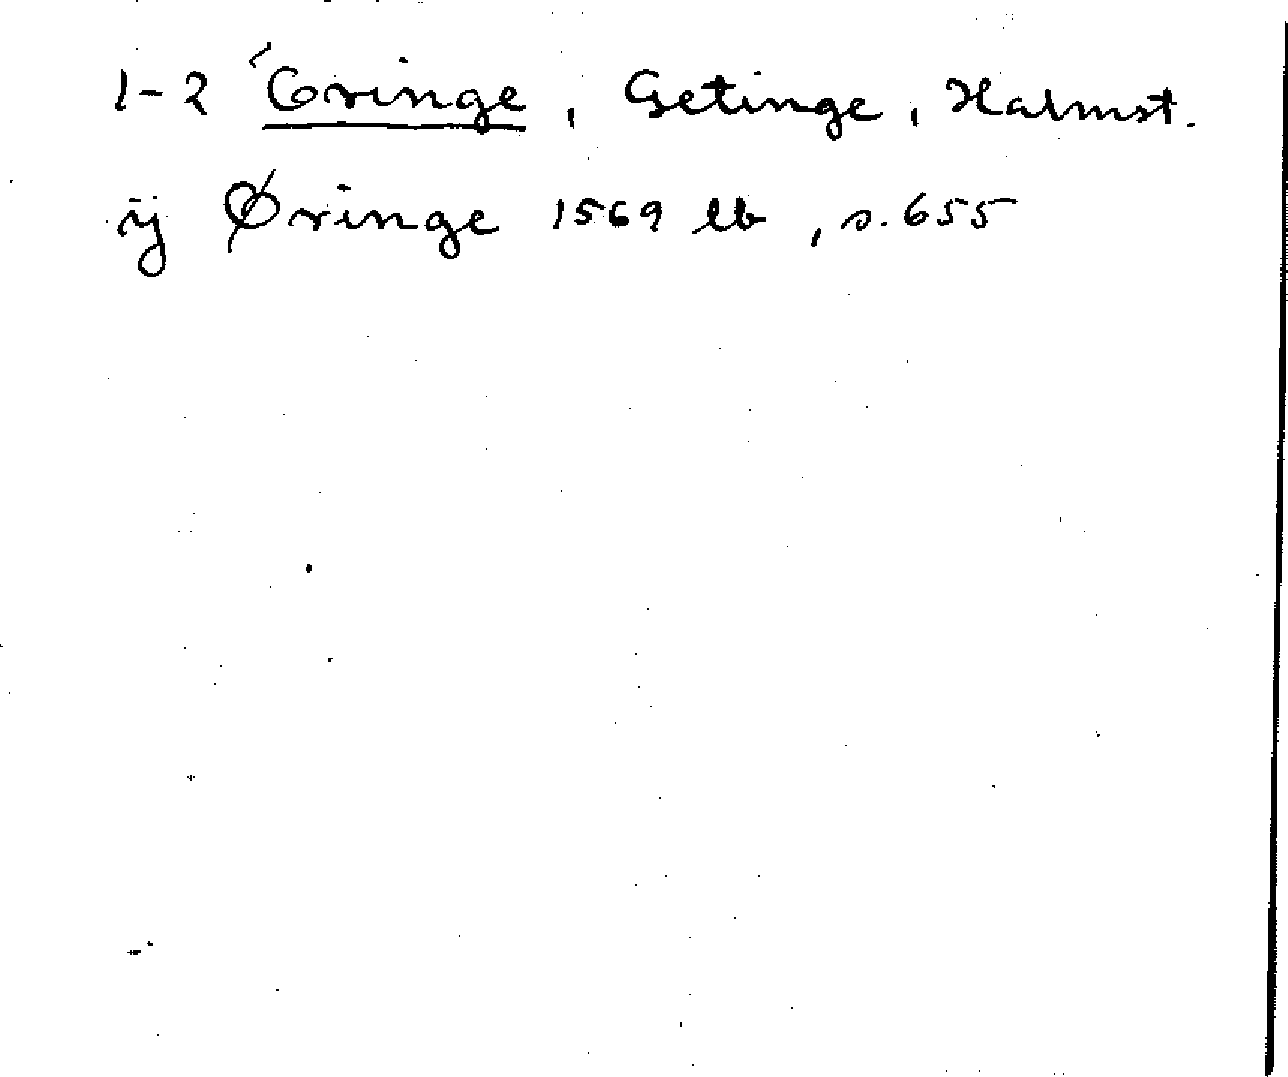 1-2 Öringe, Getinge, Halmst.
ij Øringe 1569 lb, s. 655